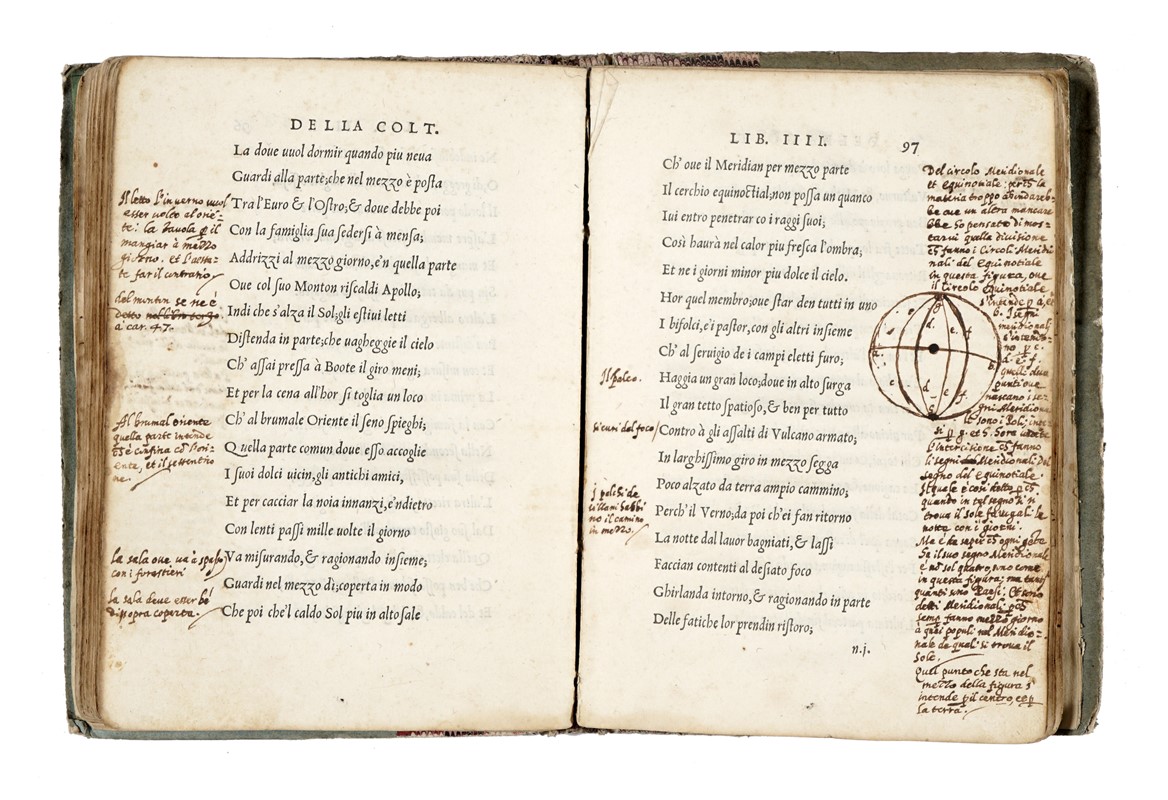 DELLA COLT.
La doue uuol dormir quando piu neua
Guardi alla parte; che nel mezzo è posta
Tra l'Euro & l'Ostro; & doue debbe poi
Con la famiglia sua sedersi à mensa;
Addrizzi al mezzo giorno, e'n quella parte
Oue col suo Monton riscaldi Apollo;
Indi che s'alza il Sol; gli estiui letti
Distenda in parte; che uagheggie il cielo
Ch' assai pressa à Boote il giro meni;
Et per la cena all'hor si toglia un loco
Ch' al brumale Oriente il seno spieghi;
Quella parte comun doue esso accoglie
I suoi dolci uicin, gli antichi amici,
Et per cacciar la noia innanzi, e'ndietro
Con lenti passi mille uolte il giorno
Va misurando, & ragionando insieme;
Guardi nel mezzo dì; coperta in modo
Che poi che'l caldo Sol piu in alto sale
Il letto l'inverno vuol
esser volto al orie=
te: la tavola p il
mangiar à mezzo
giorno. et l'esta=
te far il contrario
del monton se ne è
detto
à car. 47.
Al brumal oriente
quella parte intende
confina
ente, et il settentrio
ne.
La sala oue va à spasso
con i forastieri
La sala deue esser bē
di sopra coperta.
LIB. IIII. 97
Ch' oue il Meridian per mezzo parte
Il cerchio equinoctial; non possa un quanco
Iui entro penetrar co i raggi suoi;
Così haurà nel calor piu fresca l'ombra;
Et ne i giorni minor piu dolce il cielo.
Hor quel membro; oue star den tutti in uno
I bifolci, e'i pastor, con gli altri insieme
Ch' al seruigio de i campi eletti furo;
Haggia un gran loco; doue in alto surga
Il gran tetto spatioso, & ben per tutto
Contro à gli assalti di Vulcano armato;
In larghissimo giro in mezzo segga
Poco alzato da terra ampio cammino;
Perch'il Verno; da poi ch'ei fan ritorno
La notte dal lauor bagniati, & lassi
Faccian contenti al desiato foco
Ghirlanda intorno, & ragionando in parte
Delle fatiche lor prendin ristoro;
n.j.
Il palco.
si curi del foco
i palchi de
villani habbi
no il camino
in mezzo.
Del circolo Meridionale
et equinotiale: la
materia troppo
be oue un altra
Ho pensato di mos=
tarui quella diuisione
fanno i circoli Meridi
nali del Equinotiale
in questa figura, oue
il Circolo equinotiale
s'intende
b. I segni
meridionali
s'intendo=
no
d. e. f.
quelli due
punti oue
nascano i se=
gni Meridiona
li sono i Poli, inte=
si
l'intersitione fanno
li segni Meridionali del
segno del equinotiale.
Il quale è così detto
quando in tal segno si ri
troua il Sole le
notte con i giorni.
Ma è ha saper ogni
ha il suo segno Meridionale
è nō sol quatro, uno come
in questa figura; ma tanti
quanti uno
detti Meridionali
semp fanno mezzo giorno
à quei populi nel Meridio=
nale de quali si troua il
Sole.
Quel punto che sta nel
mezzo della figura s
intende p il centro, e p
la terra.